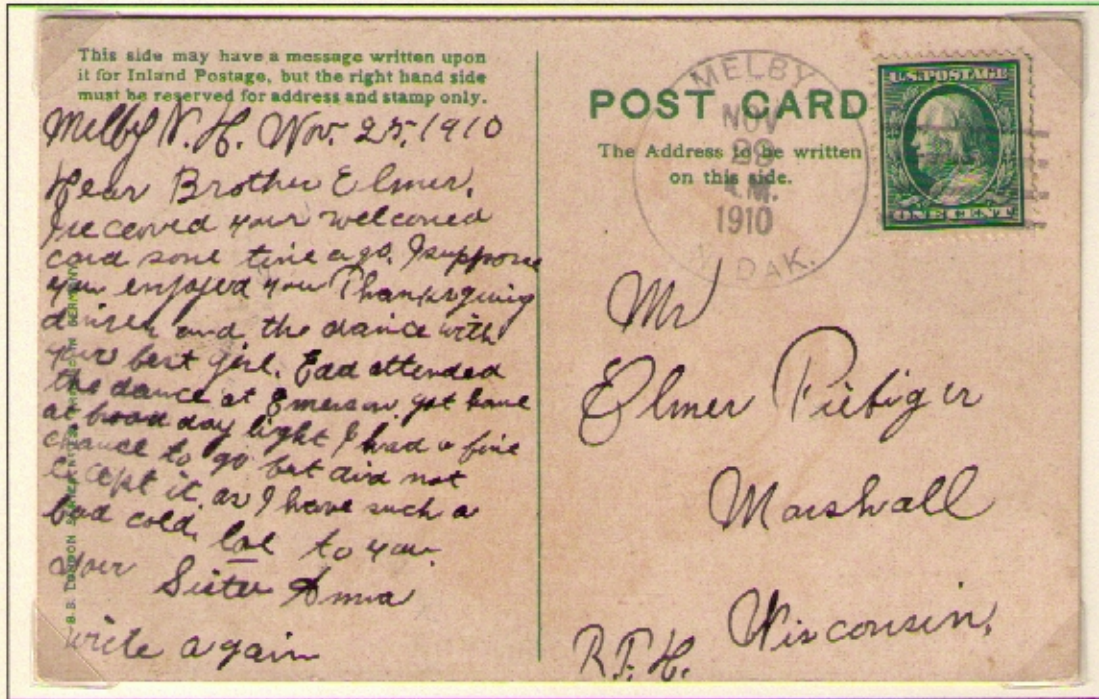 This side may have a message written upon
it for Inland Postage, but the right hand side
must be reserved for address and stamp only.
Melby N. H. Nov. 25, 1910
Dear Brother Elmer.
I receved your welcomed
card some time ago. I suppose
you enjoyed you Thanksgiving
dinner and the dance with
your best girl. Ead attended
the dance at Emerson got home
at broad day light I had a fine
chance to go but did not
except it. as I have such a
bad cold. to you.
your Sister Anna
write again
POST CARD
The Address to be written
on this side.
MELBY
NOV
M.
1910
N. DAK.
U.S. POSTAGE
ONE CENT
Mr
Elmer Fiebiger
Marshall
Wisconsin.